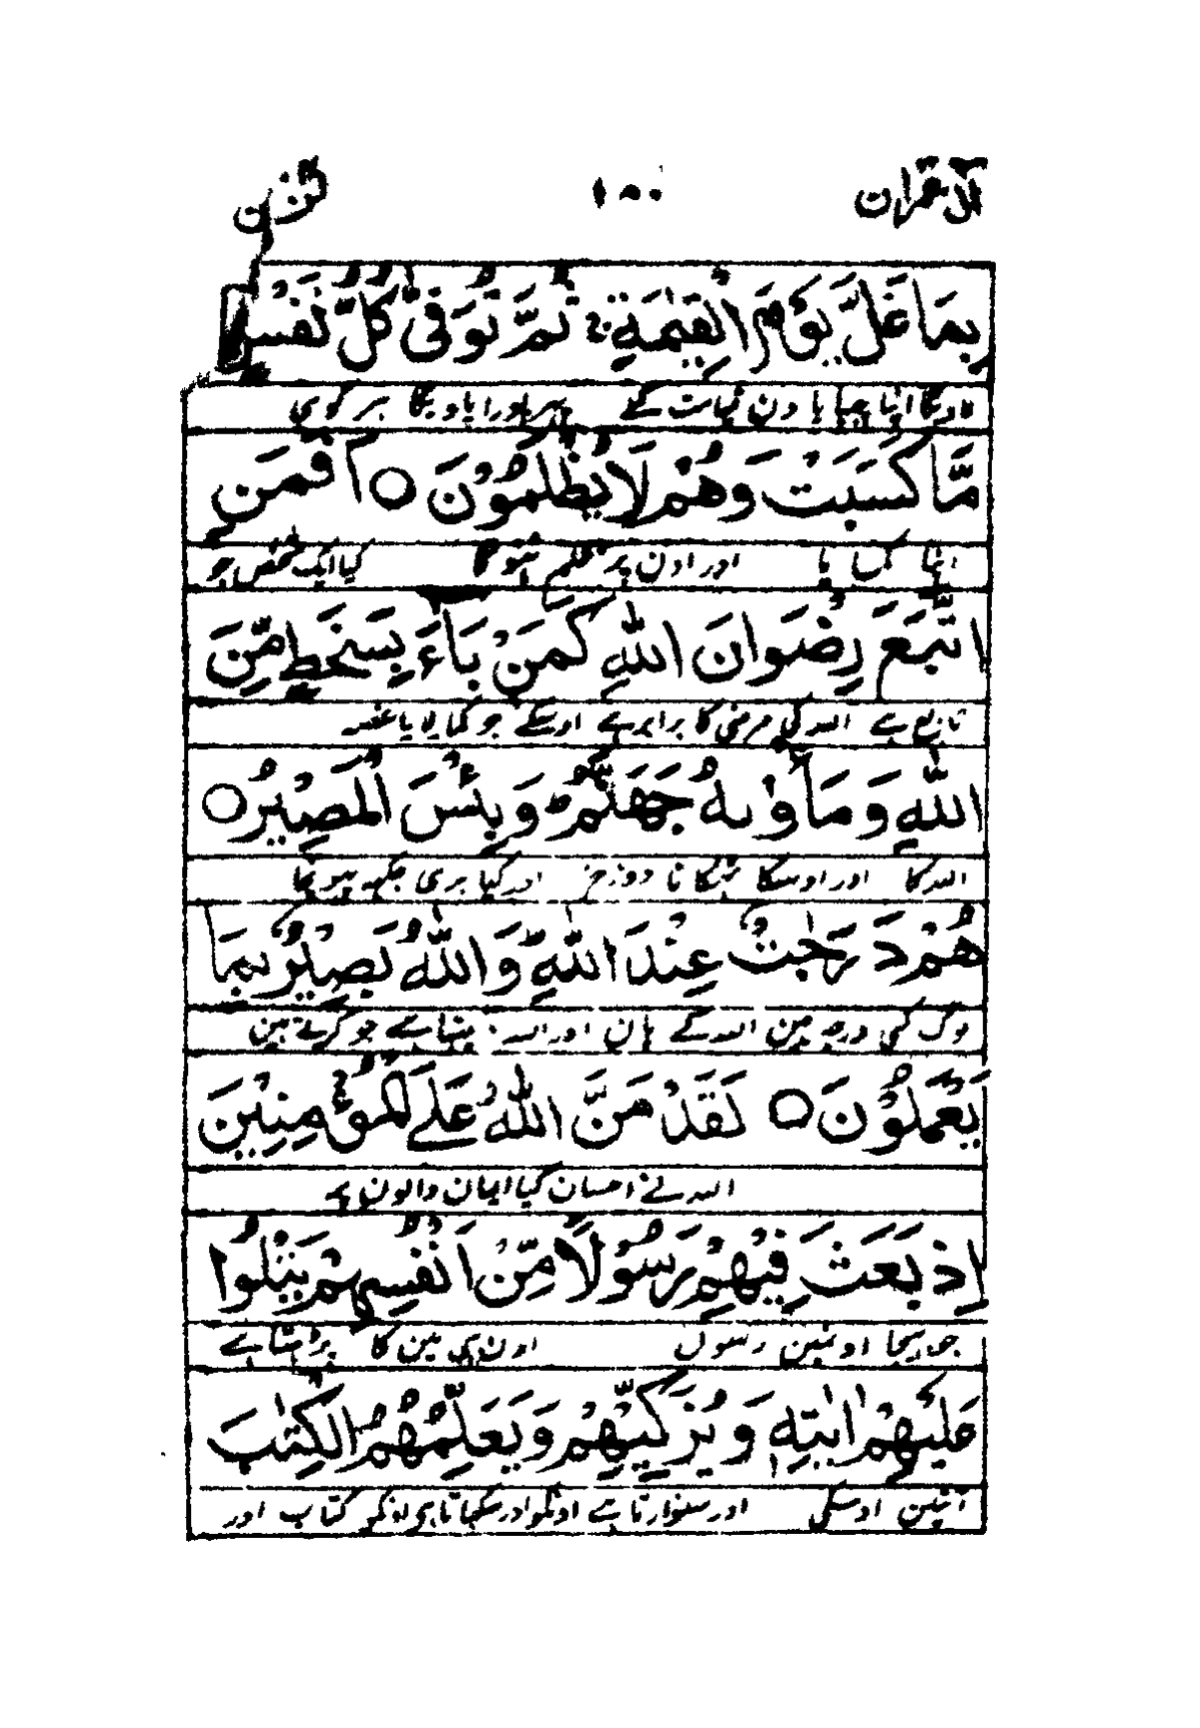 آل عمران ١٥٠
بِمَا غَلَّ يَوْمَ الْقِيٰمَةِ ۚ ثُمَّ تُوَفّٰى كُلُّ نَفْسٍ
دن قیامت کے پھر پورا پاویگا ہر کوئی
مَّا كَسَبَتْ وَهُمْ لَا يُظْلَمُوْنَ ○ اَفَمَنِ
اپنا کمایا اور اون پر ظلم نہوگا کیا ایک شخص جو
اتَّبَعَ رِضْوَانَ اللّٰهِ كَمَنْۢ بَآءَ بِسَخَطٍ مِّنَ
تابع ہے اللہ کی مرضی کا برابر ہے اوسکے جو کما لایا غصہ
اللّٰهِ وَمَاْوٰىهُ جَهَنَّمُ ؕ وَبِئْسَ الْمَصِيْرُ ○
اللہ کا اور اوسکا ٹھکانا دوزخ اور کیا بری جگہہ پہونچا
هُمْ دَرَجٰتٌ عِنْدَ اللّٰهِ ؕ وَاللّٰهُ بَصِيْرٌۢ بِمَا
لوگ کئی درجہ ہین اللہ کے ہان اور اللہ جو کرتے ہین
يَعْمَلُوْنَ ○ لَقَدْ مَنَّ اللّٰهُ عَلَى الْمُؤْمِنِيْنَ
اللہ نے احسان کیا ایمان والون پر
اِذْ بَعَثَ فِيْهِمْ رَسُوْلًا مِّنْ اَنْفُسِهِمْ يَتْلُوْا
جو بھیجا اونمین رسول اون ہی مین کا پڑھتا ہے
عَلَيْهِمْ اٰيٰتِهٖ وَيُزَكِّيْهِمْ وَيُعَلِّمُهُمُ الْكِتٰبَ
آیتین اوسکی اور سنوارتا ہے اونکو اور سکھاتا ہے اونکو کتاب اور